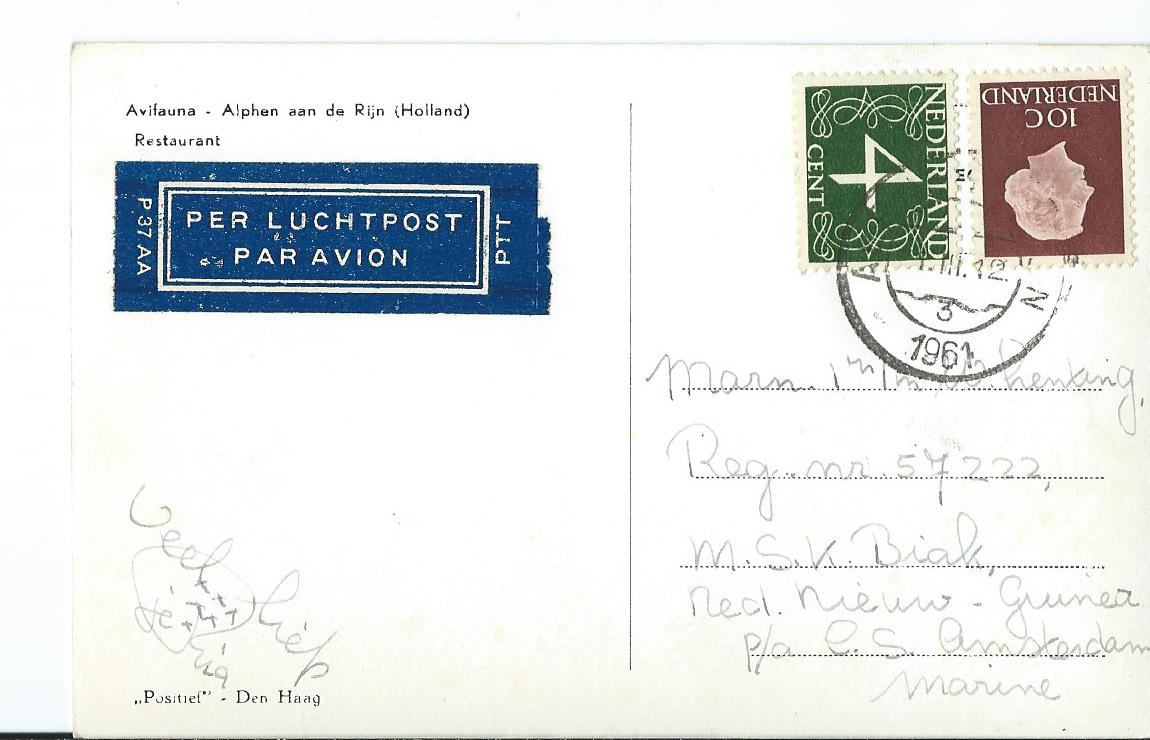 Avifauna - Alphen aan de Rijn (Holland)
Restaurant
P 37 AA
PER LUCHTPOST
PAR AVION
PTT
NEDERLAND
4
CENT
NEDERLAND
10C
III.12
3
1961
N
Marn.
Reg. nr. 57222,
M.S.K. Biak,
Ned. Nieuw-Guinea
p/a C.S. Amsterdam
Marine
Veel
liefs
„Positief” - Den Haag